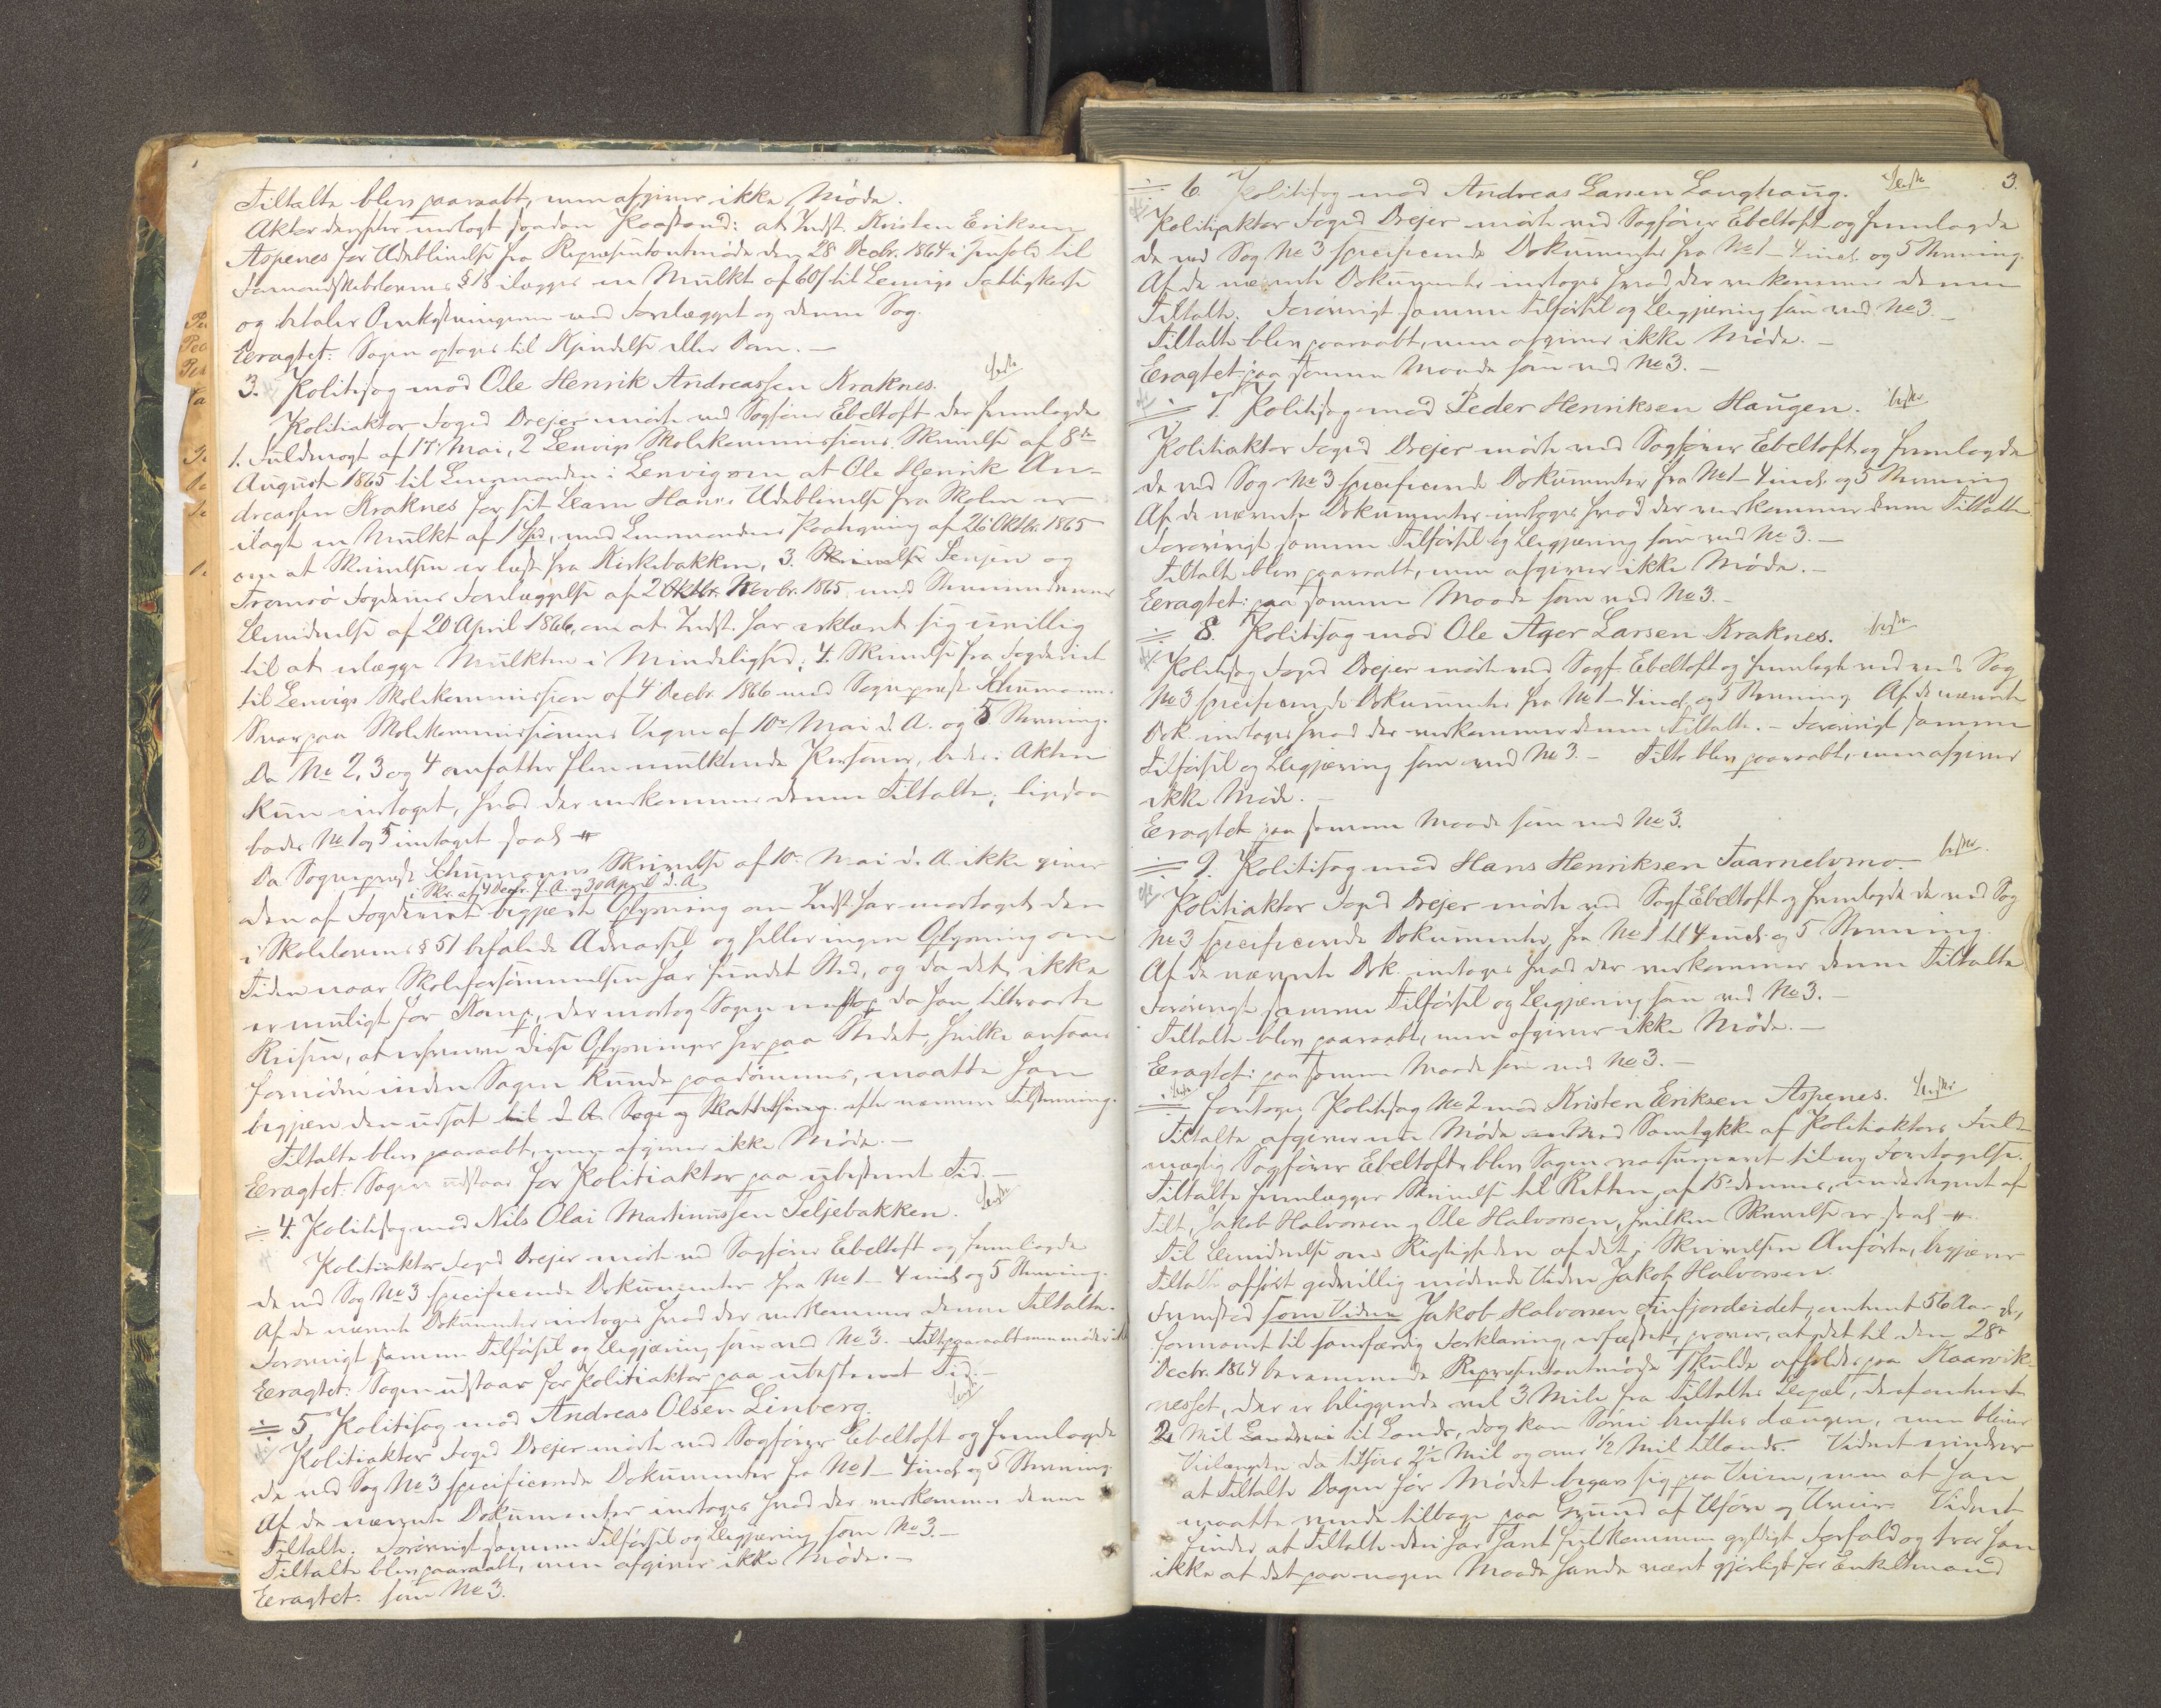 Tiltalte blev paaraabt, men afgiver ikke Møde.
Aktor derefter nedlagt saadan Paastand: at Indst. Kristen Eriksen
Aspenes for Udeblivelse fra Repræsentantmøde den 28 Decbr. 1864 i Henhold til
Formandskabslovens § 18 ilægges en Mulkt af 60 s til Lenvigs Fattigkasse
og betaler Omkostningerne ved Forelægget og denne Sag.
Eragtet: Sagen optages til Kjendelse eller Dom. —
3. Politisag mod Ole Henrik Andreassen Kraknes.
Politiaktor Foged Drejer mødte ved Sagfører Ebeltoft der fremlagde
1. Fuldmagt af 17 Mai, 2 Lenvigs Skolekommissions Skrivelse af 8de
August 1865 til Lensmanden i Lenvig om at Ole Henrik An-
dreassen Kraknes for sit Barn Hans's Udeblivelse fra Skolen er
ilagt en Mulkt af 1 Spd, med Lensmandens Paategning af 26 Oktbr. 1865
om at Skrivelsen er læst fra Kirkebakken, 3. Skrivelse Senjen og
Tromsø Fogderies Forelæggelse af 2 Oktbr. Novbr. 1865 med Stevnevidnernes
Bevidnelse af 20 April 1866, om at Indst. har erklæret sig uvillig
til at erlægge Mulkten i Mindelighed; 4. Skrivelse fra Fogderiet
til Lenvigs Skolekommission af 4 Decbr. 1866 med Sognepræst Schumanns
Svar paa Skolekommissionens Vegne af 10de Mai d. A. og 5 Stevning.
Da No 2, 3 og 4 omfatter flere mulkterede Personer, bedes i Akten
kun indtaget, hvad der vedkommer denne Tiltalte; ligesaa
bedes No 1 og 5 indtaget saal.
Da Sognepræst Schumanns Skrivelse af 10de Mai d. A. ikke giver
i Skr. af 4 Decbr. f. A. og 30 April d. A.
den af Fogderiet begjærte Oplysning om Indst. har modtaget den
i Skolelovens § 51 befalede Advarsel og heller ingen Oplysning om
Tiden naar Skoleforsømmelsen har fundet Sted, og da det ikke
er muligt for Komp., der modtog Sagen da han tiltraadte
Reisen, at erhverve disse Oplysninger her paa Stedet, hvilke ansees
fornødne inden Sagen kunde paadømmes, maatte han
begjære den udsat til d. A. Sage og Skattething efter nærmere Tilstevning.
Tiltalte blev paaraabt, men afgiver ikke Møde. —
Eragtet: Sagen udstaar for Politiaktor paa ubestemt Tid. —
4. Politisag mod Nils Olai Martinussen Seljebakken.
Politiaktor Foged Drejer mødte ved Sagfører Ebeltoft og fremlagde
de ved Sag No 3 specificerede Dokumenter fra No 1 — 4 incl. og 5 Stevning.
Af de nævnte Dokumenter indtages hvad der vedkommer denne Tiltalte.
Forøvrigt samme Tilførsel og Begjæring som ved No 3. Tilt. paaraabt men møder ikke
Eragtet: Sagen udstaar for Politiaktor paa ubestemt Tid. —
5. Politisag mod Andreas Olsen Linberg.
Politiaktor Foged Drejer mødte ved Sagfører Ebeltoft og fremlagde
de ved Sag No 3 specificerede Dokumenter fra No 1 — 4 incl. og 5 Stevning.
Af de nævnte Dokumenter indtages hvad der vedkommer denne
Tiltalte. Forøvrigt samme Tilførsel og Begjæring som No 3. —
Tiltalte blev paaraabt, men afgiver ikke Møde. —
Eragtet: som No 3.
3.
6 Politisag mod Andreas Larsen Langhaug.
Politiaktor Foged Drejer mødte ved Sagfører Ebeltoft og fremlagde
de ved Sag No 3 specificerede Dokumenter fra No 1 — 4 incl. og 5 Stevning.
Af de nævnte Dokumenter indtages hvad der vedkommer denne
Tiltalte. Forøvrigt samme Tilførsel og Begjæring som ved No 3. —
Tiltalte blev paaraabt, men afgiver ikke Møde. —
Eragtet: paa samme Maade som ved No 3. —
7. Politisag mod Peder Henriksen Haugen.
Politiaktor Foged Drejer mødte ved Sagfører Ebeltoft og fremlagde
de ved Sag No 3 specificerede Dokumenter fra No 1 — 4 incl. og 5 Stevning
Af de nævnte Dokumenter indtages hvad der vedkommer denne Tiltalte.
Forøvrigt samme Tilførsel og Begjæring som ved No 3. —
Tiltalte blev paaraabt, men afgiver ikke Møde. —
Eragtet: paa samme Maade som ved No 3. —
8. Politisag mod Ole Ager Larsen Kraknes.
Politisag Foged Drejer mødte ved Sagf. Ebeltoft og fremlagde ved Sag
No 3 specificerede Dokumenter fra No 1 — 4 incl. og 5 Stevning. Af de nævnte
Dok. indtages hvad der vedkommer denne Tiltalte. — Forøvrigt samme
Tilførsel og Begjæring som ved No 3. — Tilte. blev paaraabt, men afgiver
ikke Møde. —
Eragtet paa samme Maade som ved No 3.
9. Politisag mod Hans Henriksen Taarnelvmo.
Politiaktor Foged Drejer mødte ved Sagf. Ebeltoft og fremlagde de ved Sag
No 3 specificerede Dokumenter, fra No 1 til 4 incl. og 5 Stevning.
Af de nævnte Dok. indtages hvad der vedkommer denne Tiltalte
Forøvrigt samme Tilførsel og Begjæring som ved No 3. —
Tiltalte blev paaraabt, men afgiver ikke Møde. —
Eragtet: paa samme Maade som ved No 3. —
Foretages Politisag No 2 mod Kristen Eriksen Aspenes.
Tiltalte afgiver nu Møde Med Samtykke af Politiaktors Fuld-
mægtig Sagfører Ebeltoft blev Sagen reassumeret til ny Foretagelse.
Tiltalte fremlægger Skrivelse til Retten, af 15de dennes, undertegnet af
Tilt., Jakob Halvorsen og Ole Halvorsen, hvilken Skrivelse er saal.
Til Bevidnelse om Rigtigheden af det i Skrivelsen Anførte, begjærer
Tiltalte afhørt godvillig mødende Vidne Jakob Halvorsen.
Fremstod som Vidne Jakob Halvorsen Finfjordeidet, omtrent 56 Aar gl.,
formanet til sandfærdig Forklaring, edfæstet, prover, at det til den 28de
Decbr. 1864 berammede Repræsentantmøde skulde afholdes paa Kaarvik-
nesset, der er beliggende vel 3 Mile fra Tiltaltes Bopæl, deraf omtrent
2 Mil til Lands, dog kan Søvei benyttes længere, men bliver
Veilængden da tilsøes 2½ Mil og over ½ Mil tillands. Vidnet erindrer
at Tiltalte Dagen før Mødet begav sig paa Veien, men at han
maatte vende tilbage paa Grund af Uføre og Uveir. Vidnet
finder at Tiltalte deri har havt fuldkommen gyldigt Forfald og tror han
ikke at det paa nogen Maade havde været gjørligt for Enkeltmand